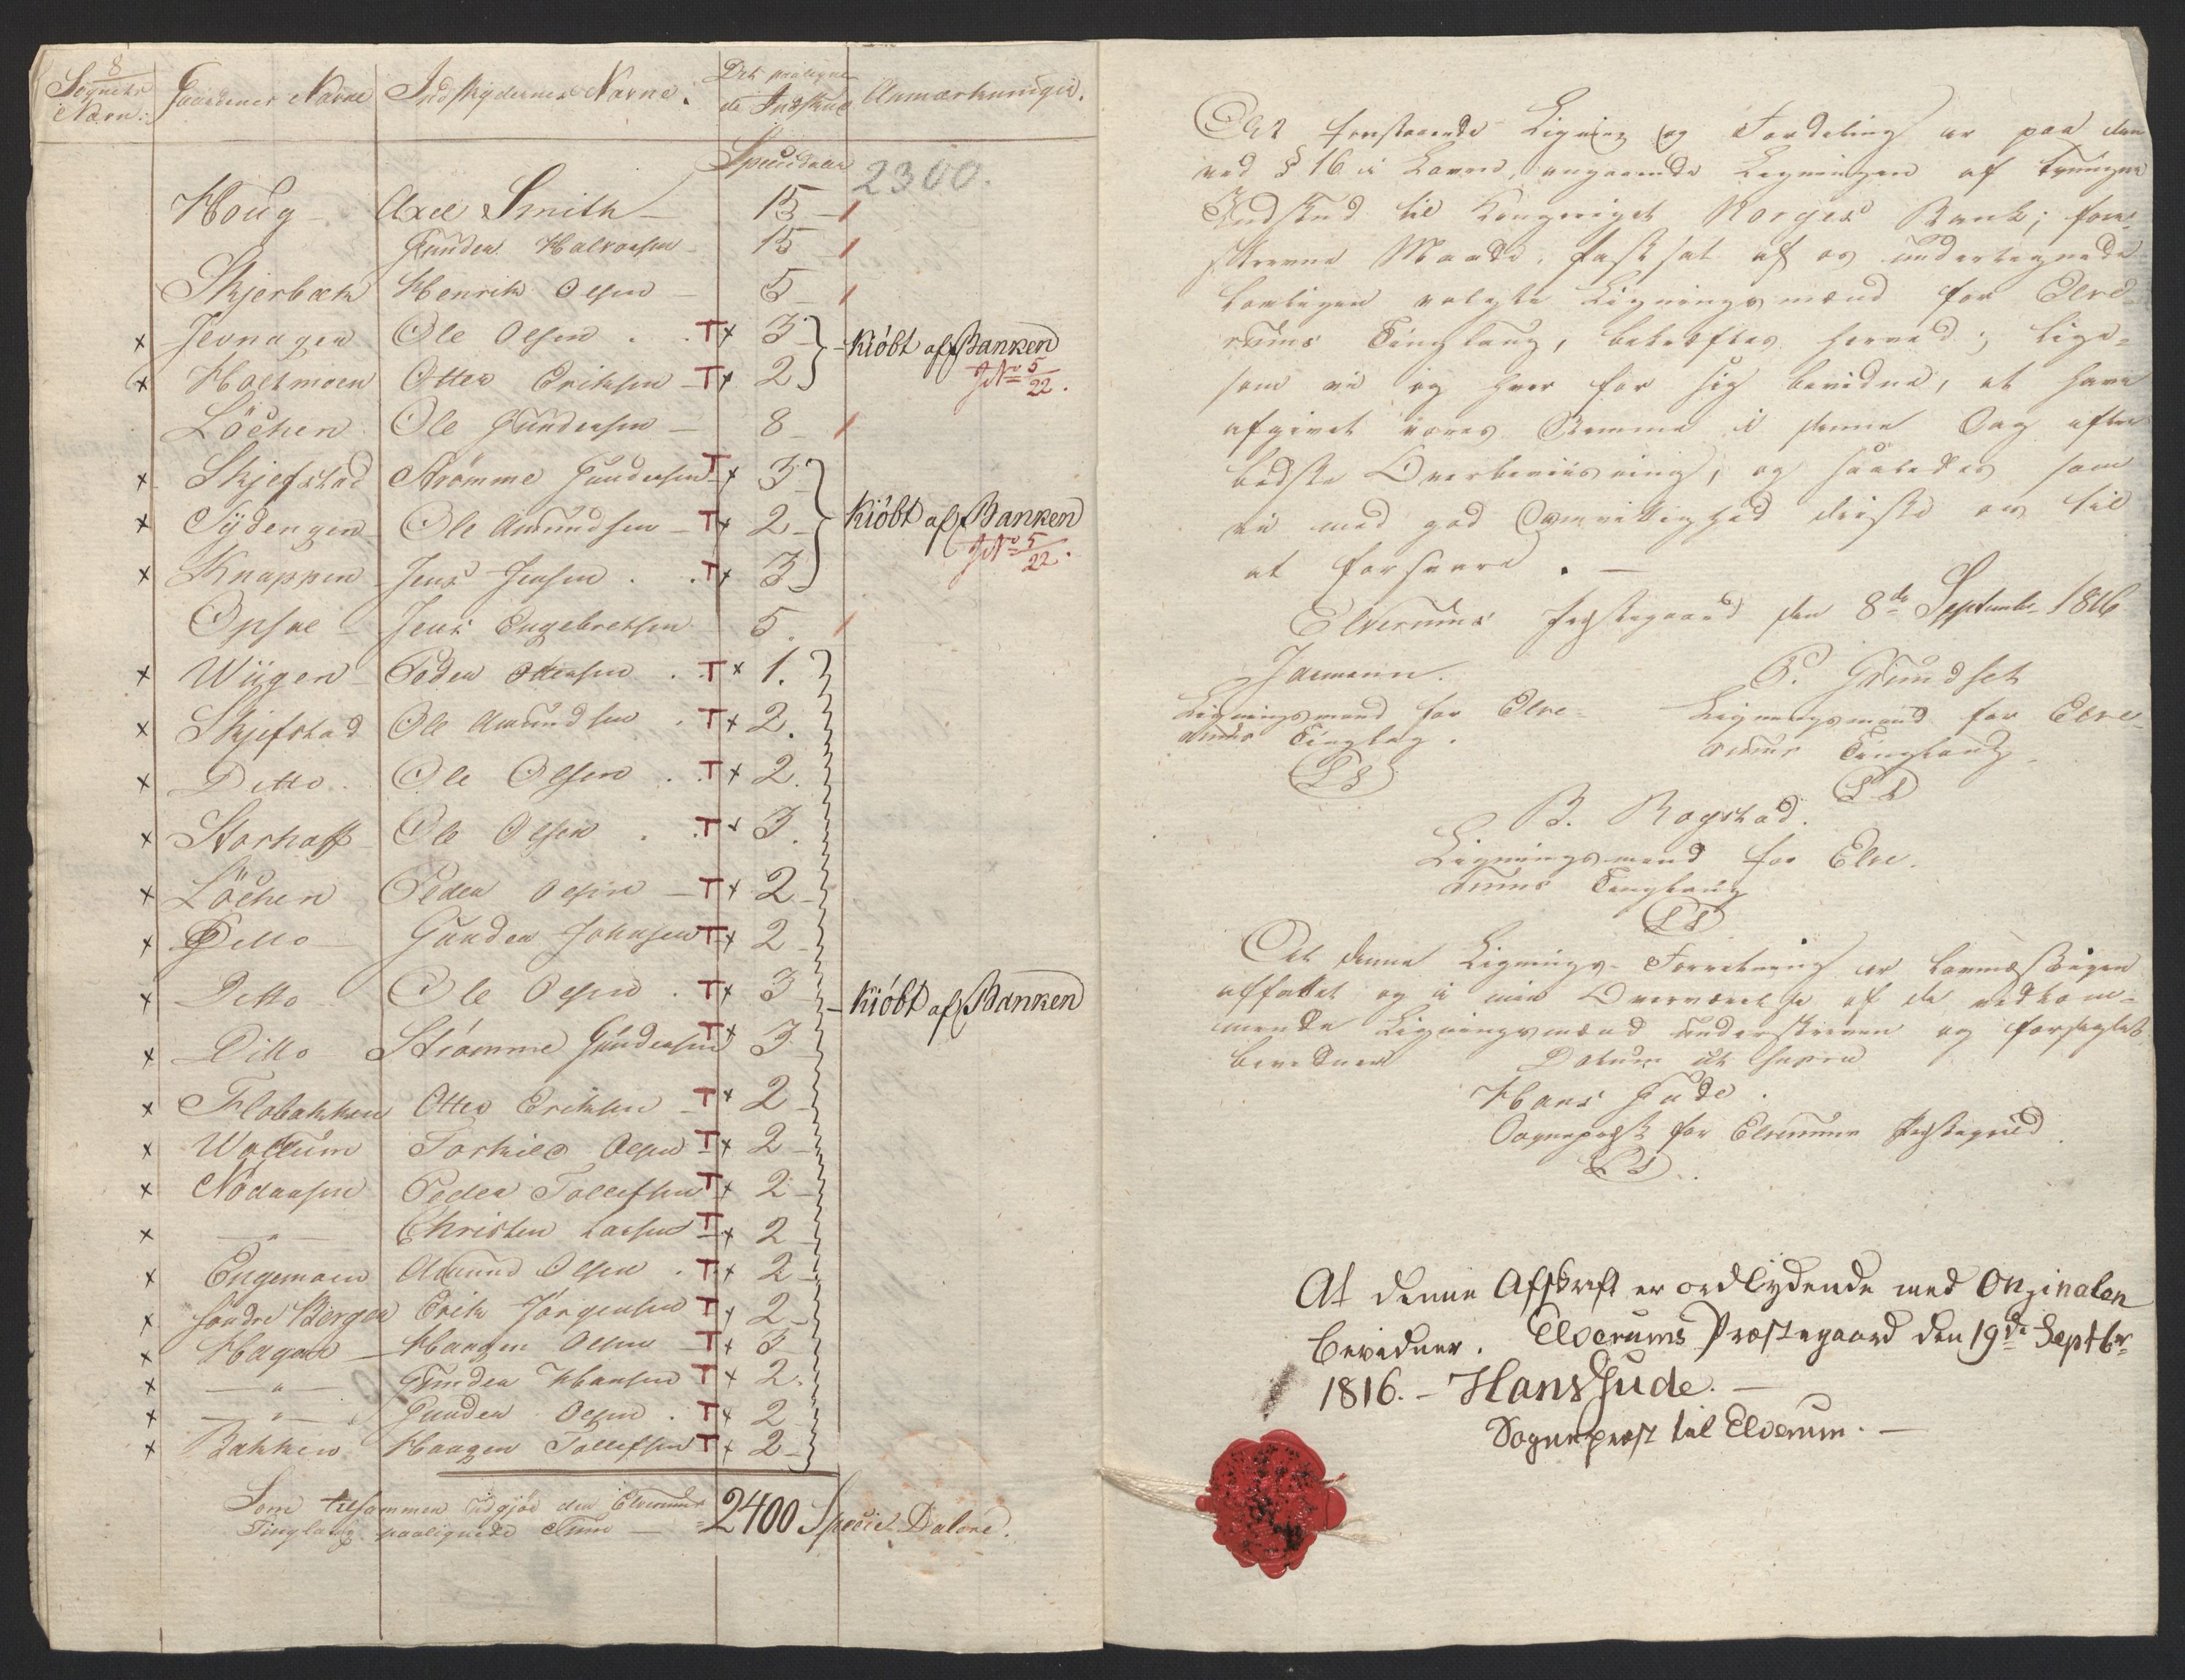 8
Sognets Navn. Gaardenes Navne Indskydernes Navne. Det paalignede Indskud Anmærkninger.
Speciedaler 2300.
Houg Axel Smith 15
Gunder Halvorsen 15
Skjerbæk Henrik Olsen 5
x Jernagen Ole Olsen T x 3
Kiöbt af Banken
x Holtmoen Otter Eriksen T x 2
JNo 5/22.
Löchen Ole Gundersen 8
x Skjefstad Strømme Gundersen T x 3
x Sydengen Ole Amundsen T x 2 Kiöbt af Banken
JNo 5/22.
x Knappen Jens Jensen T x 3
Opsal Jens Engebretsen 5.
x Wiigen Peder Ottersen T x 1.
x Skjefstad Ole Amundsen T x 2.
x Ditto Ole Olsen T x 2.
x Storhoff Ole Olsen T x 3.
x Löchen Peder Olsen T x 2
x Ditto Gunder Johnsen T x 2
x Ditto Ole Olsen T x 3 Kiöbt af Banken
x Ditto Strømme Gundersen T x 3
x Flobakken Otter Eriksen T x 2
x Wollum Torkild Olsen T x 2
x Nödaasen Peder Tollefsen T x 2
x — " — Christen Larsen T x 2
x Engemoen Amund Olsen T x 2
x Søndre Berger Erik Jörgensen T x 2
x Hagen Haagen Olsen T x 3
x — " — Gunder Hansen T x 2.
x — " — Gunder Olsen T x 2
x Bakken Haagen Tollefsen T x 2
Som tilsammen udgjör den Elverums
Tinglaug paalignede Sum — 2400 Specie Dalere.
At forestaaende Ligning og Fordeling er paa den
ved § 16 i Loven, angaaende Ligningen af tvungne
Indskud til Kongeriget Norges Bank; fore-
skrevne Maade, fastsat af os undertegnede
lovligen valgte Ligningsmænd for Elve-
rums Tinglaug, bekræftes herved; lige-
som vi og hver for sig bevidne, at have
afgivet vores Stemme i denne Sag efter
bedste Overbeviisning, og saaledes som
vi med god Samvittighed driste os til
at forsvare. —
Elverums Præstegaard den 8de Septembr 1816
Jarmann. P. Grundset
Ligningsmand for Elve- Ligningsmand for Elve-
rums Tinglag. rums Tinglaug
(LS) (LS)
B. Rogstad.
Ligningsmand for Elve-
rums Tinglaug
(LS)
At denne Lignings-Forretning er lovmæssigen
affattet og i min Overværelse af de vedkom-
mende Ligningsmænd underskreven og forseglet
bevidner Datum ut supra
Hans Gude.
Sognepræst for Elverums Præstegield.
(LS)
At denne Afskrift er ordlydende med Originalen
bevidner. Elverums Præstegaard den 19de Septbr
1816. — Hans Gude. —
Sognepræst til Elverum. —